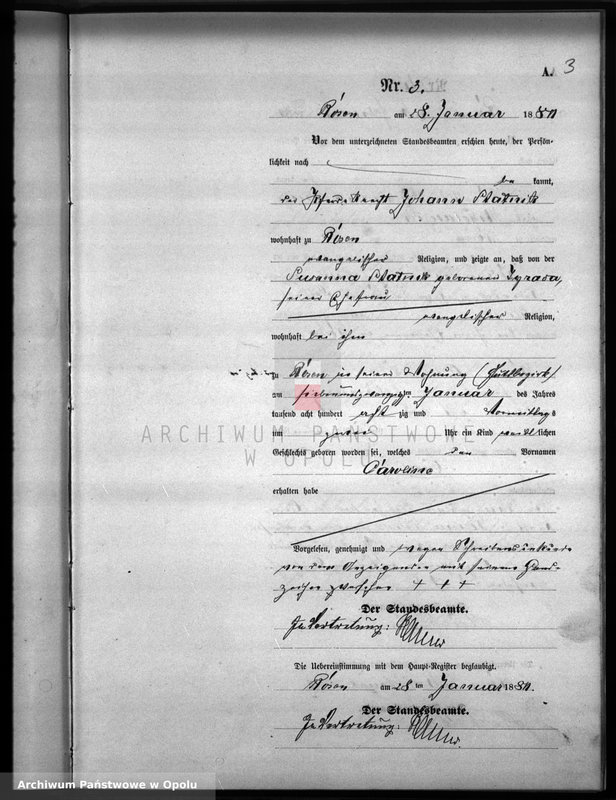 A. 3
Nr. 3.
Rösen am 28. Januar 188
Vor dem unterzeichneten Standesbeamten erschien heute, der Persön-
lichkeit nach
be kannt,
der Pferdeknecht Johann Statnik
wohnhaft zu Rösen
evangelischer Religion, und zeigte an, daß von der
Susanna Statnik geborenen
seiner Ehefrau
evangelischer Religion,
wohnhaft bei ihm
zu Rösen in seiner Wohnung (Gutsbezirk)
am siebenundzwanzigsten Januar des Jahres
tausend acht hundert acht zig und Vormittags
um Uhr ein Kind weiblichen
Geschlechts geboren worden sei, welches den Vornamen
Caroline
erhalten habe
Vorgelesen, genehmigt und wegen Schreibensunkunde
von dem Anzeigenden mit seinem Hand-
zeichen versehen + + +
Der Standesbeamte.
In Vertretung:
Die Uebereinstimmung mit dem Haupt-Register beglaubigt.
Rösen am 28 ten Januar 188
Der Standesbeamte.
In Vertretung:
ARCHIWUM PAŃSTWOWE
W OPOLU
Archiwum Państwowe w Opolu